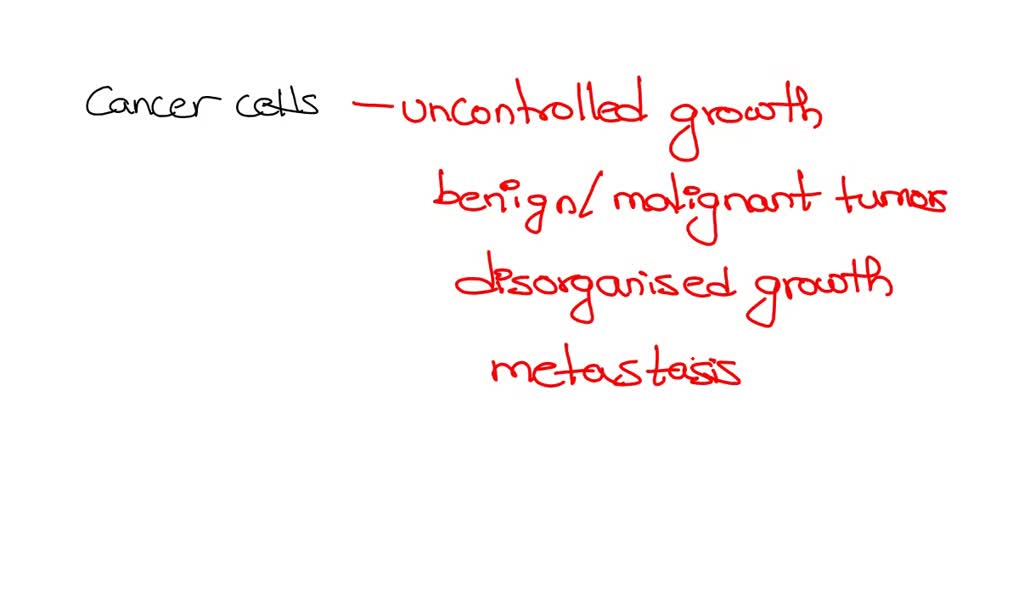 Cancer cells — uncontrolled growth
benign/ malignant tumor
disorganised growth
metastasis